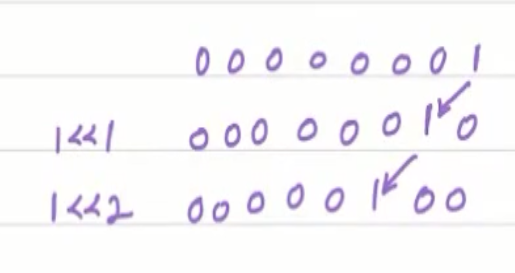 0 0 0 0 0 0 0 1
1<<1 0 0 0 0 0 0 1 0
1<<2 0 0 0 0 0 1 0 0